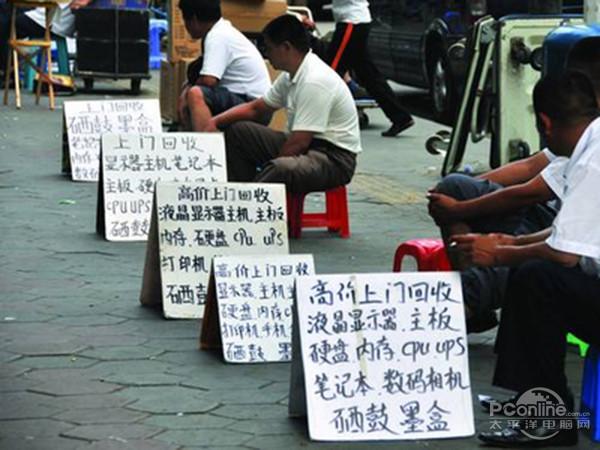 硒鼓墨盒
上门回收
显示器主机笔记
主板
CPU UPS
硒鼓墨盒
高价上门回收
液晶显示器主机.主板
内存.硬盘CPU.UPS
打印机
硒鼓
高价上门回收
显示器.主机
硬盘.内存.CPU
打印机.手机
硒鼓墨
高价上门回收
液晶显示器.主板
硬盘.内存.CPU UPS
笔记本.数码相机
硒鼓墨盒
PConline
.com.cn
太平洋电脑网